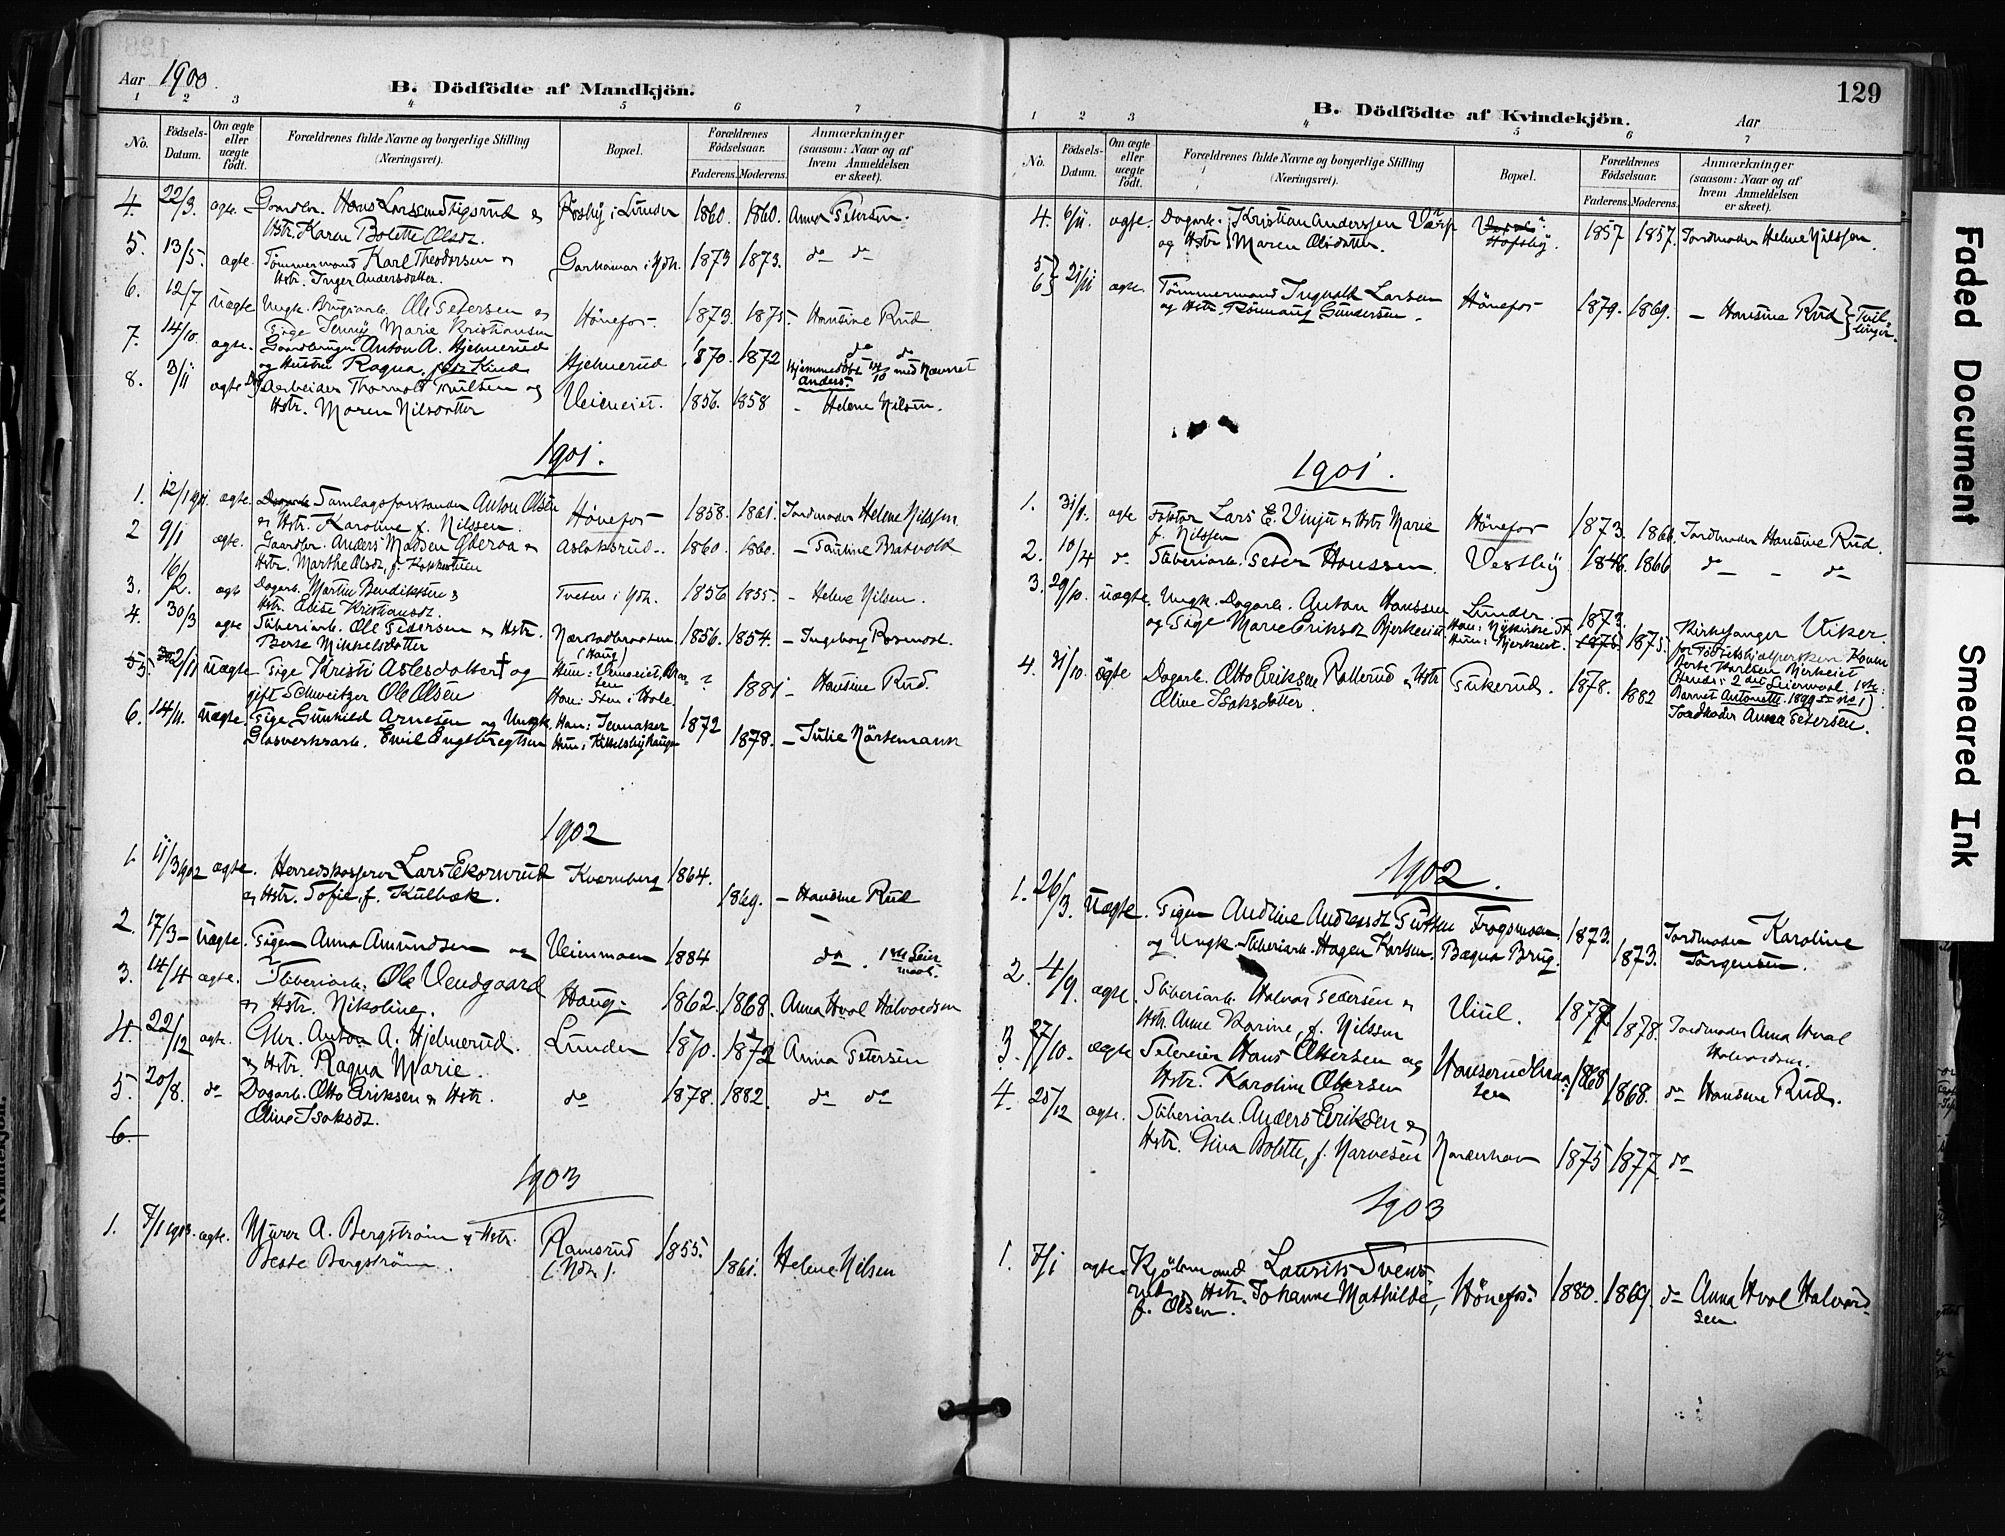 Aar 1900.
B. Dödfödte af Mandkjön.
1 2 3 4 5 6 7
No.
Födsels-Datum.
Om ægte eller uægte födt.
Forældrenes fulde Navne og borgerlige Stilling (Næringsvei).
Bopæl.
Forældrenes Födselsaar.
Faderens. Moderens.
Anmærkninger (saasom: Naar og af hvem Anmeldelsen er skeet).
4. 22/3. ægte. Gaardbr. Hans Larsen Stigsrud & Rosby i Lunder 1860. 1860. Anna Petersen.
Hstr. Karen Bolette Olsdr.
5. 13/5. ægte. Tømmermand Karl Theodorsen & Garhamar i Ndh. 1873 1873. do do
Hstr. Inger Andersdatter.
6. 12/7 uægte Ungk. Brugsarb. Ole Petersen & Hönefos. 1873. 1875. Hansine Rud.
Pige Jenny Marie Kristiansen
7. 14/10. ægte. Gaardbruger Anton A. Hjelmerud Hjelmerud 1870. 1872 do do
og Hustru Ragna, Hjemmedøbt 14/10 med Navnet Anders.
8. 3/11 ægte Dag Arbeider Thorvald Paulsen og Veieneiet. 1856. 1858 - Helene Nilsen.
Hstr. Maren Nilsdatter
1901.
1. 12/1 1901. ægte. Samlagsforstander Anton Olsen Hönefos 1858. 1861. Jordmoder Helene Nilssen
& Hstr. Karoline f. Nilssen.
2 9/1 ægte. Gaardbr. Anders Madsen Oderaa & Aslaksrud. 1860. 1860. - Pauline Bratvold
Hstr. Marthe Olsdr, f. Kokkestuen
3. 16/2. ægte Dagarb. Martin Bendiksen & Tveten i Ndh. 1856 1855. - Helene Nilsen.
Hstr. Elise Kristiansdr.
4. 30/3 ægte Sliberiarb. Ole Pedersen & Hstr. Nærstadbraaten (Haug) 1856. 1854. - Ingeborg Rosenvol.
Berte Mikkelsdatter
5. 2/11 uægte Pige Kristi Aslesdatter og Hun: ? 1881 - Hansine Rud.
gift Schweitzer Ole Olsen Han: Sten i Hole
6. 14/11. uægte. Pige Gunhild Arnesen og Ungk. Han: Jevnaker 1872 1878. - Julie Nörsemann
Glasverksarb. Emil Engebregtsen Hun: Kittelsbyhaugen
1902
1. 11/3 1902 ægte. Herredskasserer Lars Ekornrud Kværnberg 1864. 1869. - Hansine Rud
& Hstr. Sofie, f. Kulbæk.
2. 17/3 - uægte. Pigen Anna Amundsen og Veienmoen 1884 do. 1ste Leiermaal.
?
3. 14/4 ægte. Sliberiarb. Ole Vendgaard Haug. 1862. 1868. Anna Hval Halvordsen
& Hstr. Nikoline.
4. 22/12 ægte. Gbr. Anton A. Hjelmerud. Lunder 1870. 1872 Anna Petersen
& Hstr. Ragna Marie.
5. 20/8. do Dagarb. Otto Eriksen & Hstr. do 1878. 1882. do do
Oline Isaksdr.
6.
1903
1. 7/1 1903. ægte. Murer A. Bergström & Hstr. Ramsrud (Ndh.). 1855. 1861. Helene Nilsen
Beate Bergström.
129
B. Dödfödte af Kvindekjön.
Aar
1 2 3 4 5 6 7
No.
Födsels-Datum.
Om ægte eller uægte födt.
Forældrenes fulde Navne og borgerlige Stilling (Næringsvei).
Bopæl.
Forældrenes Födselsaar.
Faderens. Moderens.
Anmærkninger (saasom: Naar og af hvem Anmeldelsen er skeet).
4. 6/11. ægte. Dagarb. Kristian Anderssen Værp Hofsby. 1857 1857. Jordmoder Helene Nilssen.
og Hstr. Maren Olsdatter.
5 6 } 21/11 ægte. Tömmermand Ingvald Larsen Hönefos 1879. 1869. - Hansine Rud } Tvillinger.
og Hstr. Rönnaug Gundersen.
1901.
1. 31/1. ægte Faktor Lars E. Vinju & Hstr Marie Hönefos 1873. 1866. Jordmoder Hansine Rud.
f. Nilssen
2. 10/4 do Sliberiarb. Peter Hanssen. Vestby 1846. 1866 do - do
3. 29/10. uægte. Ungk. Dagarb. Anton Hanssen Lunder. 1873. 1875. Kirkesanger Viker
og Pige Marie Eriksdr Bjerkeiet Hun: Bjerkeiet.
Hendes 2det Leiermaal. 1ste: Barnet Antonette. 1899
4. 31/10. ægte Dagarb. Otto Eriksen Rallerud & Hstr Pukerud. 1878. 1882 Jordmoder Anna Petersen.
Oline Isaksdatter.
1902.
1. 26/3. uægte. Pigen Andrine Andreasdr Putten Frogsmoen 1873. Jordmoder Karoline Jørgensen.
og Ungk. Sliberiarb. Hagen Karlsen. Bægna Brug. 1873.
2. 4/9. ægte. Sliberiarb. Halvor Pedersen & Viul. 1877 1878. Jordmoder Anna Hval Halvordsen.
Hstr. Anne Karine, f. Nilssen
3. 27/10. ægte Seleier Hans Ottersen og Hanserudbraaten 1868 1868. do Hansine Rud.
Hstr. Karoline Ottersen
4. 25/12 ægte. Sliberiarb. Anders Eriksen &
Hstr. Gina Bolette, f. Narvesen Norderhov 1875 1877. do
1903
1. 7/1 ægte. Kjöbmand Laurits Svensrud & Hstr. Johanne Mathilde, Hönefos. 1880. 1869. do Anna Hval Halvordsen
f. Olsen.
Faded Document
Smeared Ink